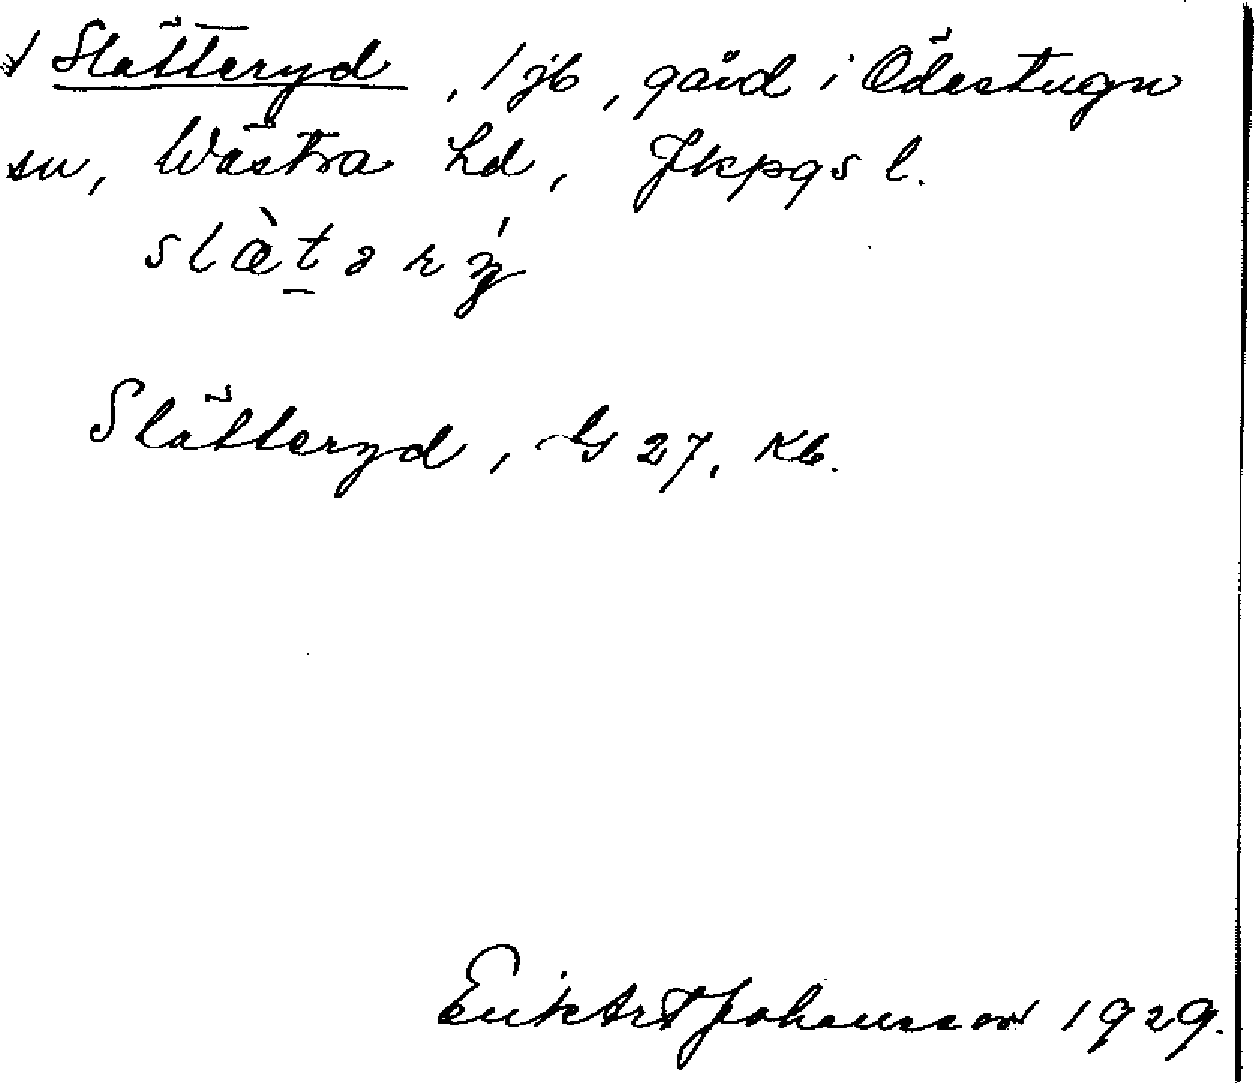 Slätteryd, 1 jb, gård i Ödestugu
sn, Västra hd, Jkpgs l.
slæ̀tarý
Slätteryd, G 27, Kb.
Erik Art Johansson 1929.